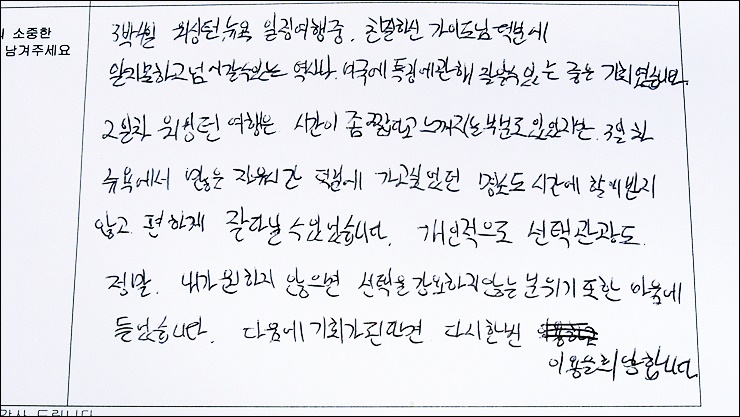 소중한
남겨주세요
3박4일 워싱턴, 뉴욕 일정여행중, 친절하신 가이드님 덕분에
알지못하고 넘어갈수있는 역사나 미국에 특징에 관해 잘알수있는 좋은 기회였습니다.
2일차 워싱턴 여행은 시간이 좀 짧다고 느껴지는 부분도 있었지만, 3일차
뉴욕에서 많은 자유시간 덕분에 가고싶었던 명소도 시간에 할애받지
않고 편하게 잘다닐 수있었습니다. 개인적으로 선택관광도
정말. 내가 원하지 않으면 선택을 강요하지않는 분위기 또한 마음에
들었습니다. 다음에 기회가된다면 다시한번
이용할 합니다.
감사 드립니다